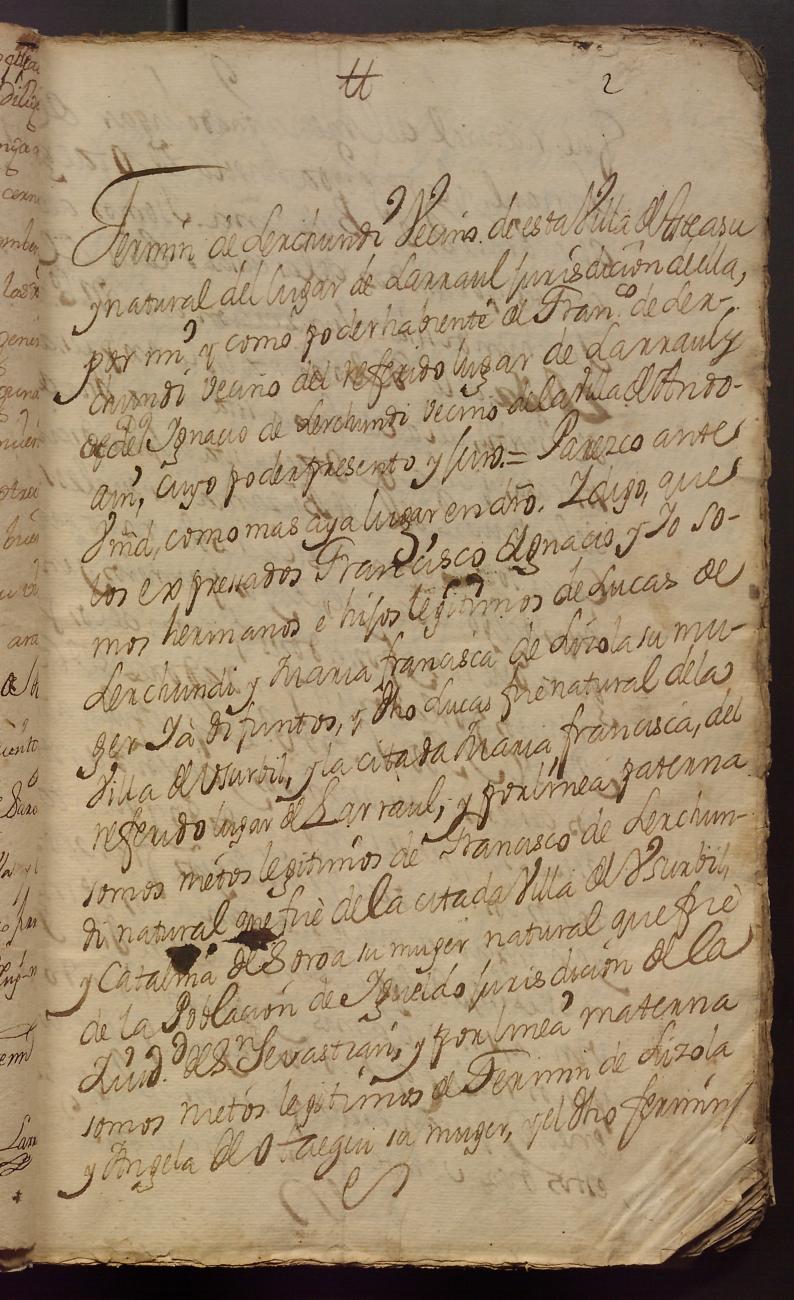 tt 2
Fermin de Lerchundi Vecino de esta Villa de Asteasu
y natural del lugar de Larraul jurisdicion de ella,
por mi, y como poderhabiente de Fran.co de Ler-
chundi vecino del referido lugar de Larraul, y
de Ignacio de Lerchundi vecino de la Villa de Ando-
ain, cuyo poder presento y juro = Parezco ante
Vmd, como mas aya lugar en dro. I digo, que
los expressados Francisco Ignacio, y Io so-
mos hermanos è hijos legitimos de Lucas de
Lerchundi y Maria francisca de Lizola su mu-
ger Ià difuntos, y dho Lucas fuè natural de la
Villa de Vsurbil, y la citada Maria francisca, del
referido lugar de Larraul, y por linea paterna
somos nietos legitimos de Francisco de Lerchun-
di natural que fuè de la citada Villa de Vsurbil,
y Catalina de Soroa su muger natural que fuè
de la Poblacion de Igueldo jurisdicion de la
Ciud.d de S.n Sevastian, y por linea materna
somos nietos legitimos de Fermin de Lizola
y Angela de Otaegui su muger, y el dho fermin